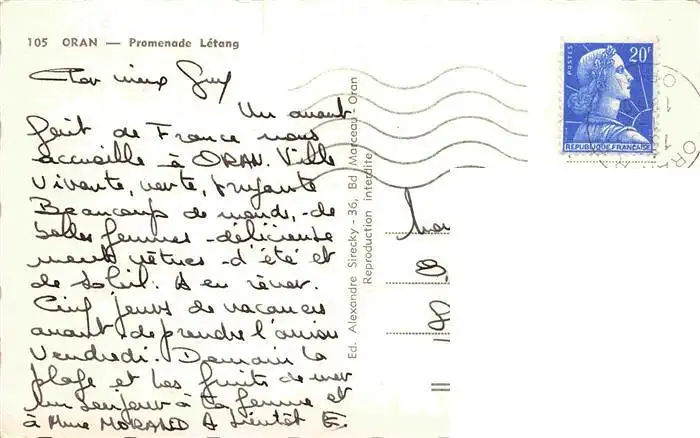 105 ORAN — Promenade Létang
Cher vieux Guy
Un avant
goût de France nous
accueille à ORAN. Ville
vivante, verte, bruyante
Beaucoup de monde, de
belles femmes délicieuse
ment vêtues d'été et
de soleil. A en rêver.
Cinq jours de vacances
avant de prendre l'avion
Vendredi. Demain la
plage et les fruits de mer
un bonjour à ta femme et
à Mme MORAND A bientôt E.
Ed. Alexandre Sirecky - 36, Bd Marceau - Oran
Reproduction interdite
POSTES
20F
REPUBLIQUE FRANÇAISE
ORAN